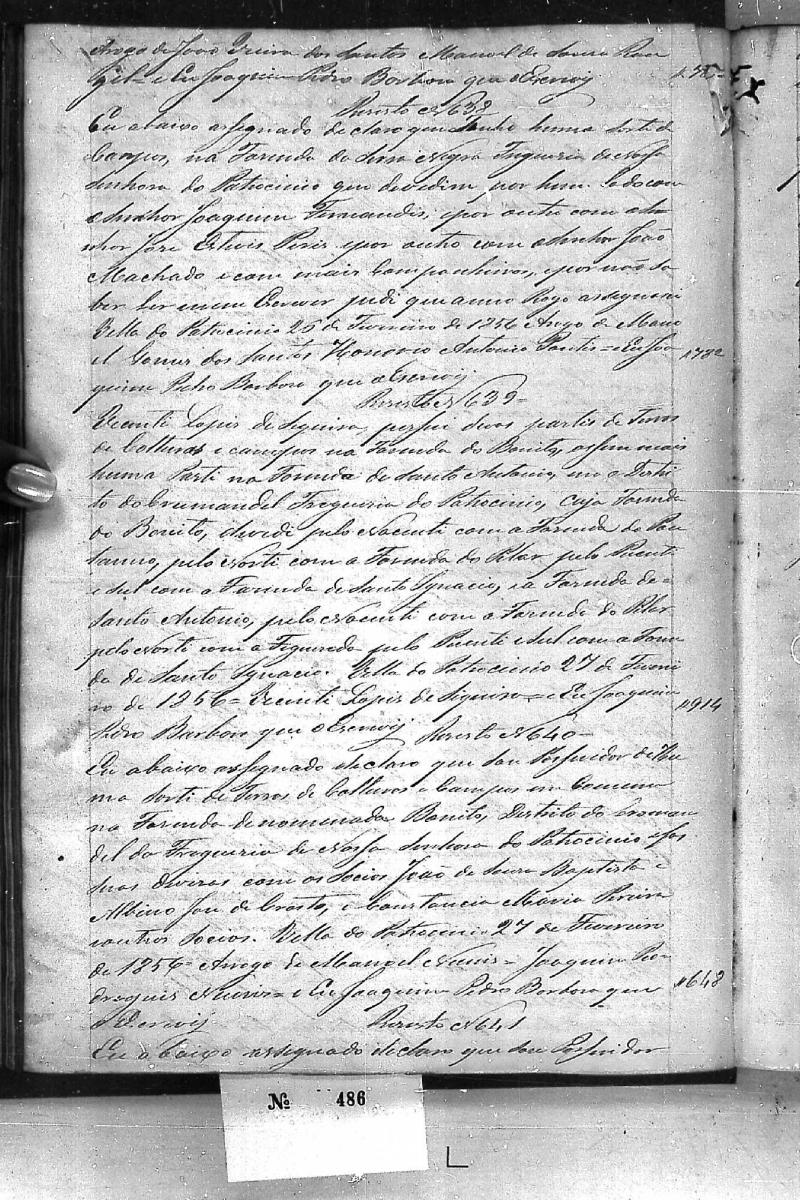 Arogo de João Vieira dos Santos Manoel de Souza Ran
gel = e Eu Joaquim Pedro Barbosa que o Escrevij
Resisto N 638
Eu abaixo assegnado declaro que tenho huma sorti de
Campos, na Fazenda da Serra Negra Freguezia de Nossa
Senhora do Patrocinio que devedim por hum lado com
o Senhor Joaquim Fernandis, epor outro com o Se
nhor José Estevis Peris epor outro com o Senhor João
Machado e com mais Companheiros, epor não sa
ber ler nem Escrever pedi que a meu Rogo assegnasi
Villa do Patrocinio 25 de Fevreiro de 1856 Arogo de Mano
el Gomes dos Santos Honorio Antonio = e Eu Joa
1782
quim Pedro Barbosa que o Escrevij
Resisto N 639 =
Vicenti Lopis de Siqueira, possui duas partis de Terras
de Colturas e campos na Fazenda do Bonito, assim mais
huma Parti na Fazenda de Santo Antonio, em o Destri
to do Cromandel Freguezia do Patrocinio, cuja Fazenda
do Bonito, devedi pelo Nacenti com a Fazenda do
pelo Norti com a Fazenda do Pilar pelo Puenti
e Sul com a Fazenda de Santo Ignacio, e a Fazenda de =
Santo Antonio, pelo Nacenti com a Fazenda do Pilar
pelo Norti com a Figueredo pelo Puenti e Sul com a Fazen
da de Santo Ignacio. Villa do Patrocinio 27 de Fevrei
ro de 1856 = Vicenti Lopis de Siqueira = e Eu Joaquim
914
Pedro Barbosa que o Escrevij Resisto N 640 =
Eu abaixo assegnado declaro que sou Possuidor de Hu
ma Sorti de Terras de Colturas e Campos em Comum
na Fazenda denomenada Bonito, Destrito do Croman
del da Freguezia de Nossa Senhora do Patrocinio
suas Divizas com os Socios João de Souza Baptista e
Albino José de Crasto, e Constancia Maria Pereira
e outros Socios. Villa do Patrocinio 27 de Fevereiro
de 1856 = Arogo de Manoel Nunis = Joaquim Ro
dregues Nunis = e Eu Joaquim Pedro Barbosa que
648
o Escrevij Resisto N 641
Eu abaixo assegnado declaro que sou Possuidor
No 486
L